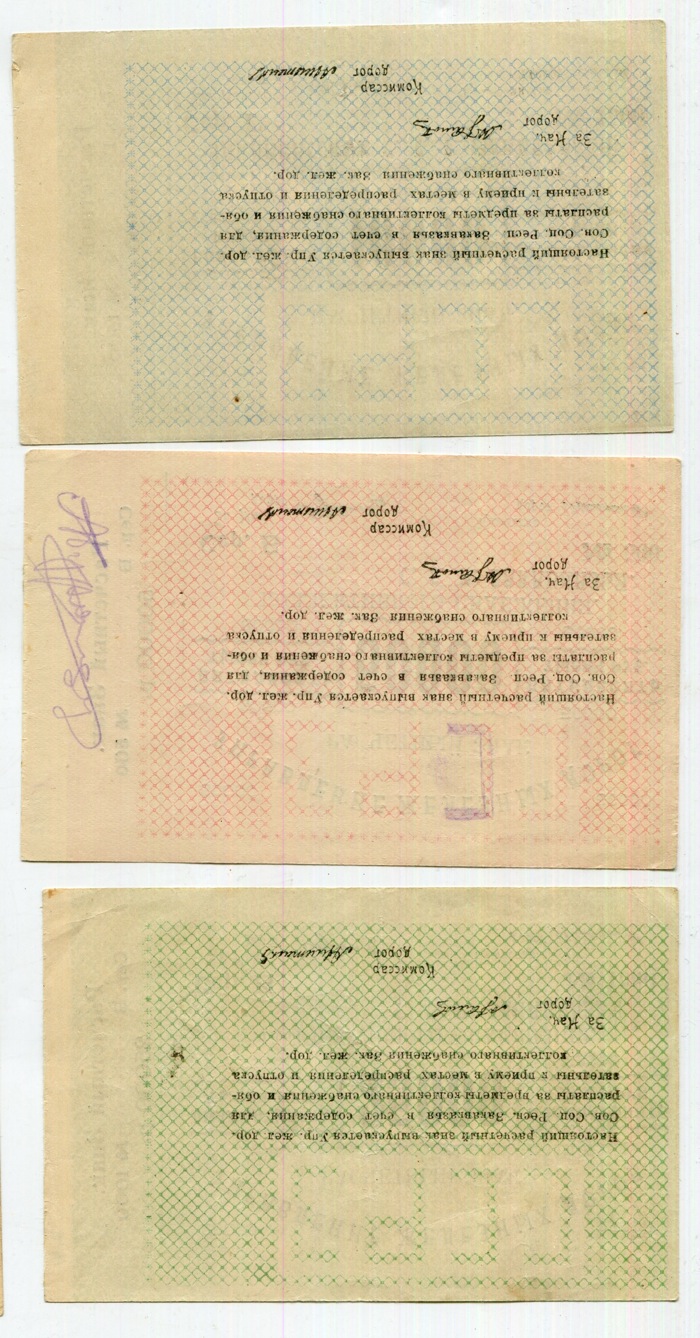 Настоящий расчетный знак выпускается Упр. жел. дор.
Сов. Соц. Респ. Закавказья в счет содержания, для
расплаты за предметы коллективнаго снабжения и обя-
зательны к приему в местах распределения и отпуска
коллективнаго снабжения Зак. жел. дор.
За Нач.
дорог
Комиссар
дорог
Настоящий расчетный знак выпускается Упр. жел. дор.
Сов. Соц. Респ. Закавказья в счет содержания, для
расплаты за предметы коллективнаго снабжения и обя-
зательны к приему в местах распределения и отпуска
коллективнаго снабжения Зак. жел. дор.
За Нач.
дорог
Комиссар
дорог
Настоящий расчетный знак выпускается Упр. жел. дор.
Сов. Соц. Респ. Закавказья в счет содержания, для
расплаты за предметы коллективнаго снабжения и обя-
зательны к приему в местах распределения и отпуска
коллективнаго снабжения Зак. жел. дор.
За Нач.
дорог
Комиссар
дорог